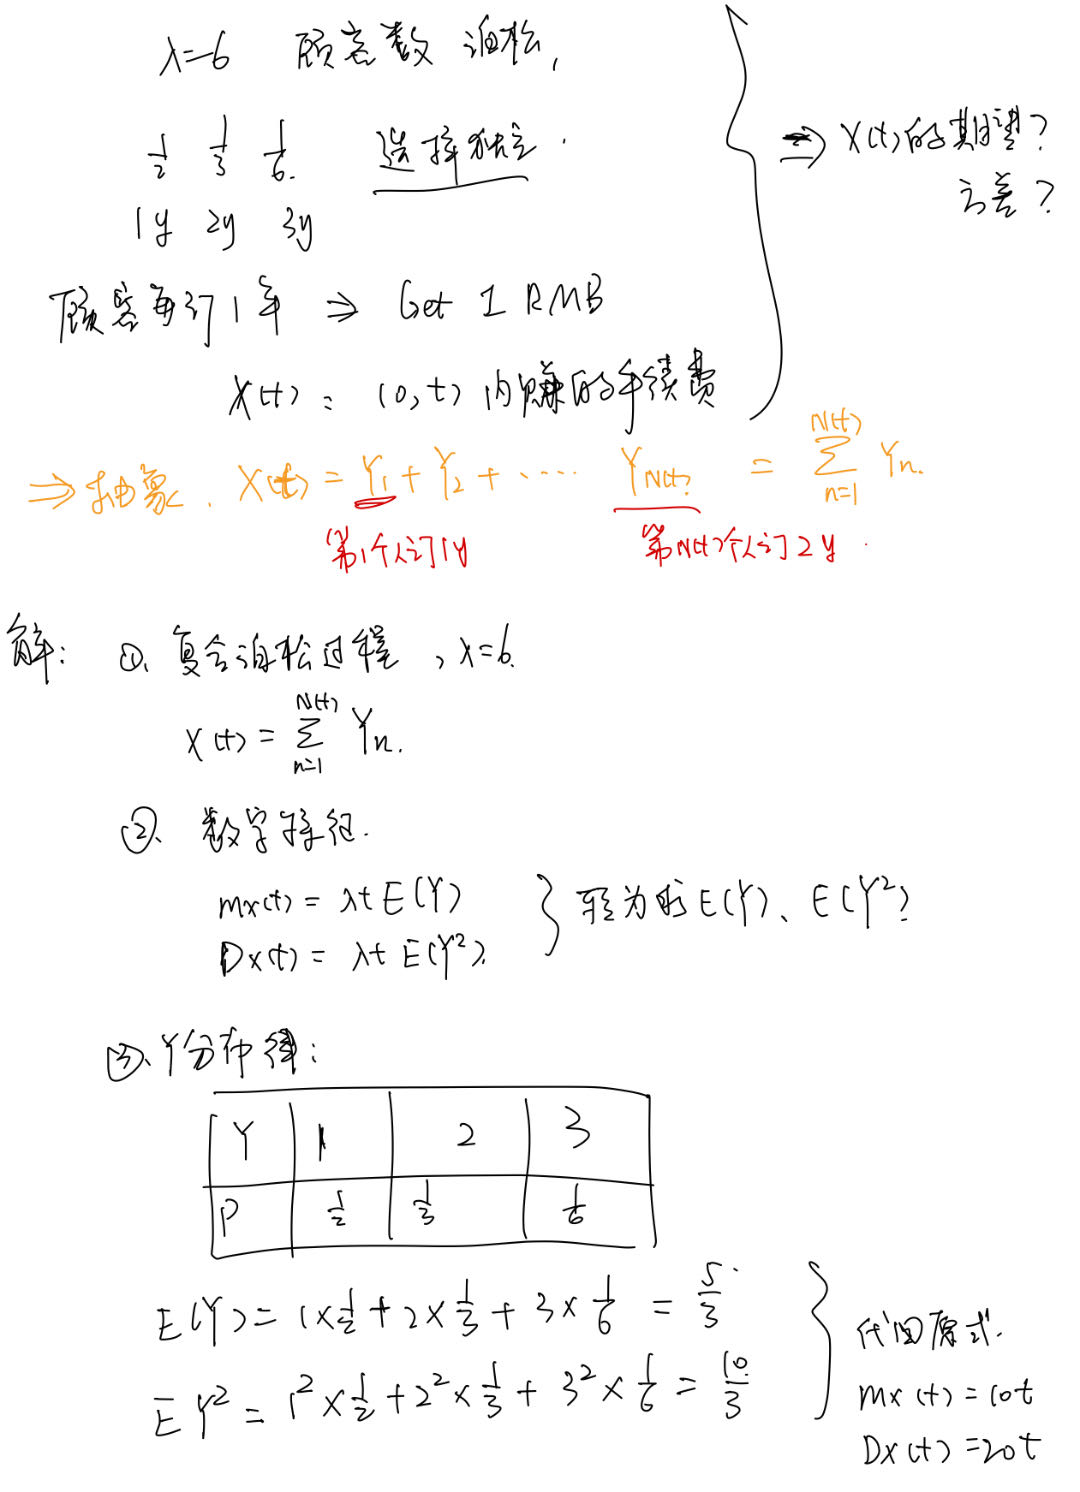 λ=6 顾客数 泊松,
1/2 1/3 1/6. 选择独立.
1y 2y 3y
顾客每订1年 ⇒ Get 1 RMB
X(t): (0,t) 内赚的手续费
⇒ X(t)的期望?
方差?
⇒ 抽象. X(t) = Y₁ + Y₂ + ‥‥ Y_N(t) = ∑_{n=1}^{N(t)} Yn.
第1个人订1y 第N(t)个人订2y.
解: ①. 复合泊松过程, λ=6.
X(t) = ∑_{n=1}^{N(t)} Yn.
②. 数字特征.
mx(t) = λt E(Y)
Dx(t) = λt E(Y²).
} 转为求E(Y)、E(Y²)
③. Y分布律:
Y 1 2 3
P 1/2 1/3 1/6
E(Y) = 1×1/2 + 2×1/3 + 3×1/6 = 5/3.
EY² = 1²×1/2 + 2²×1/3 + 3²×1/6 = 10/3
代回原式.
mx(t) = 10t
Dx(t) = 20t